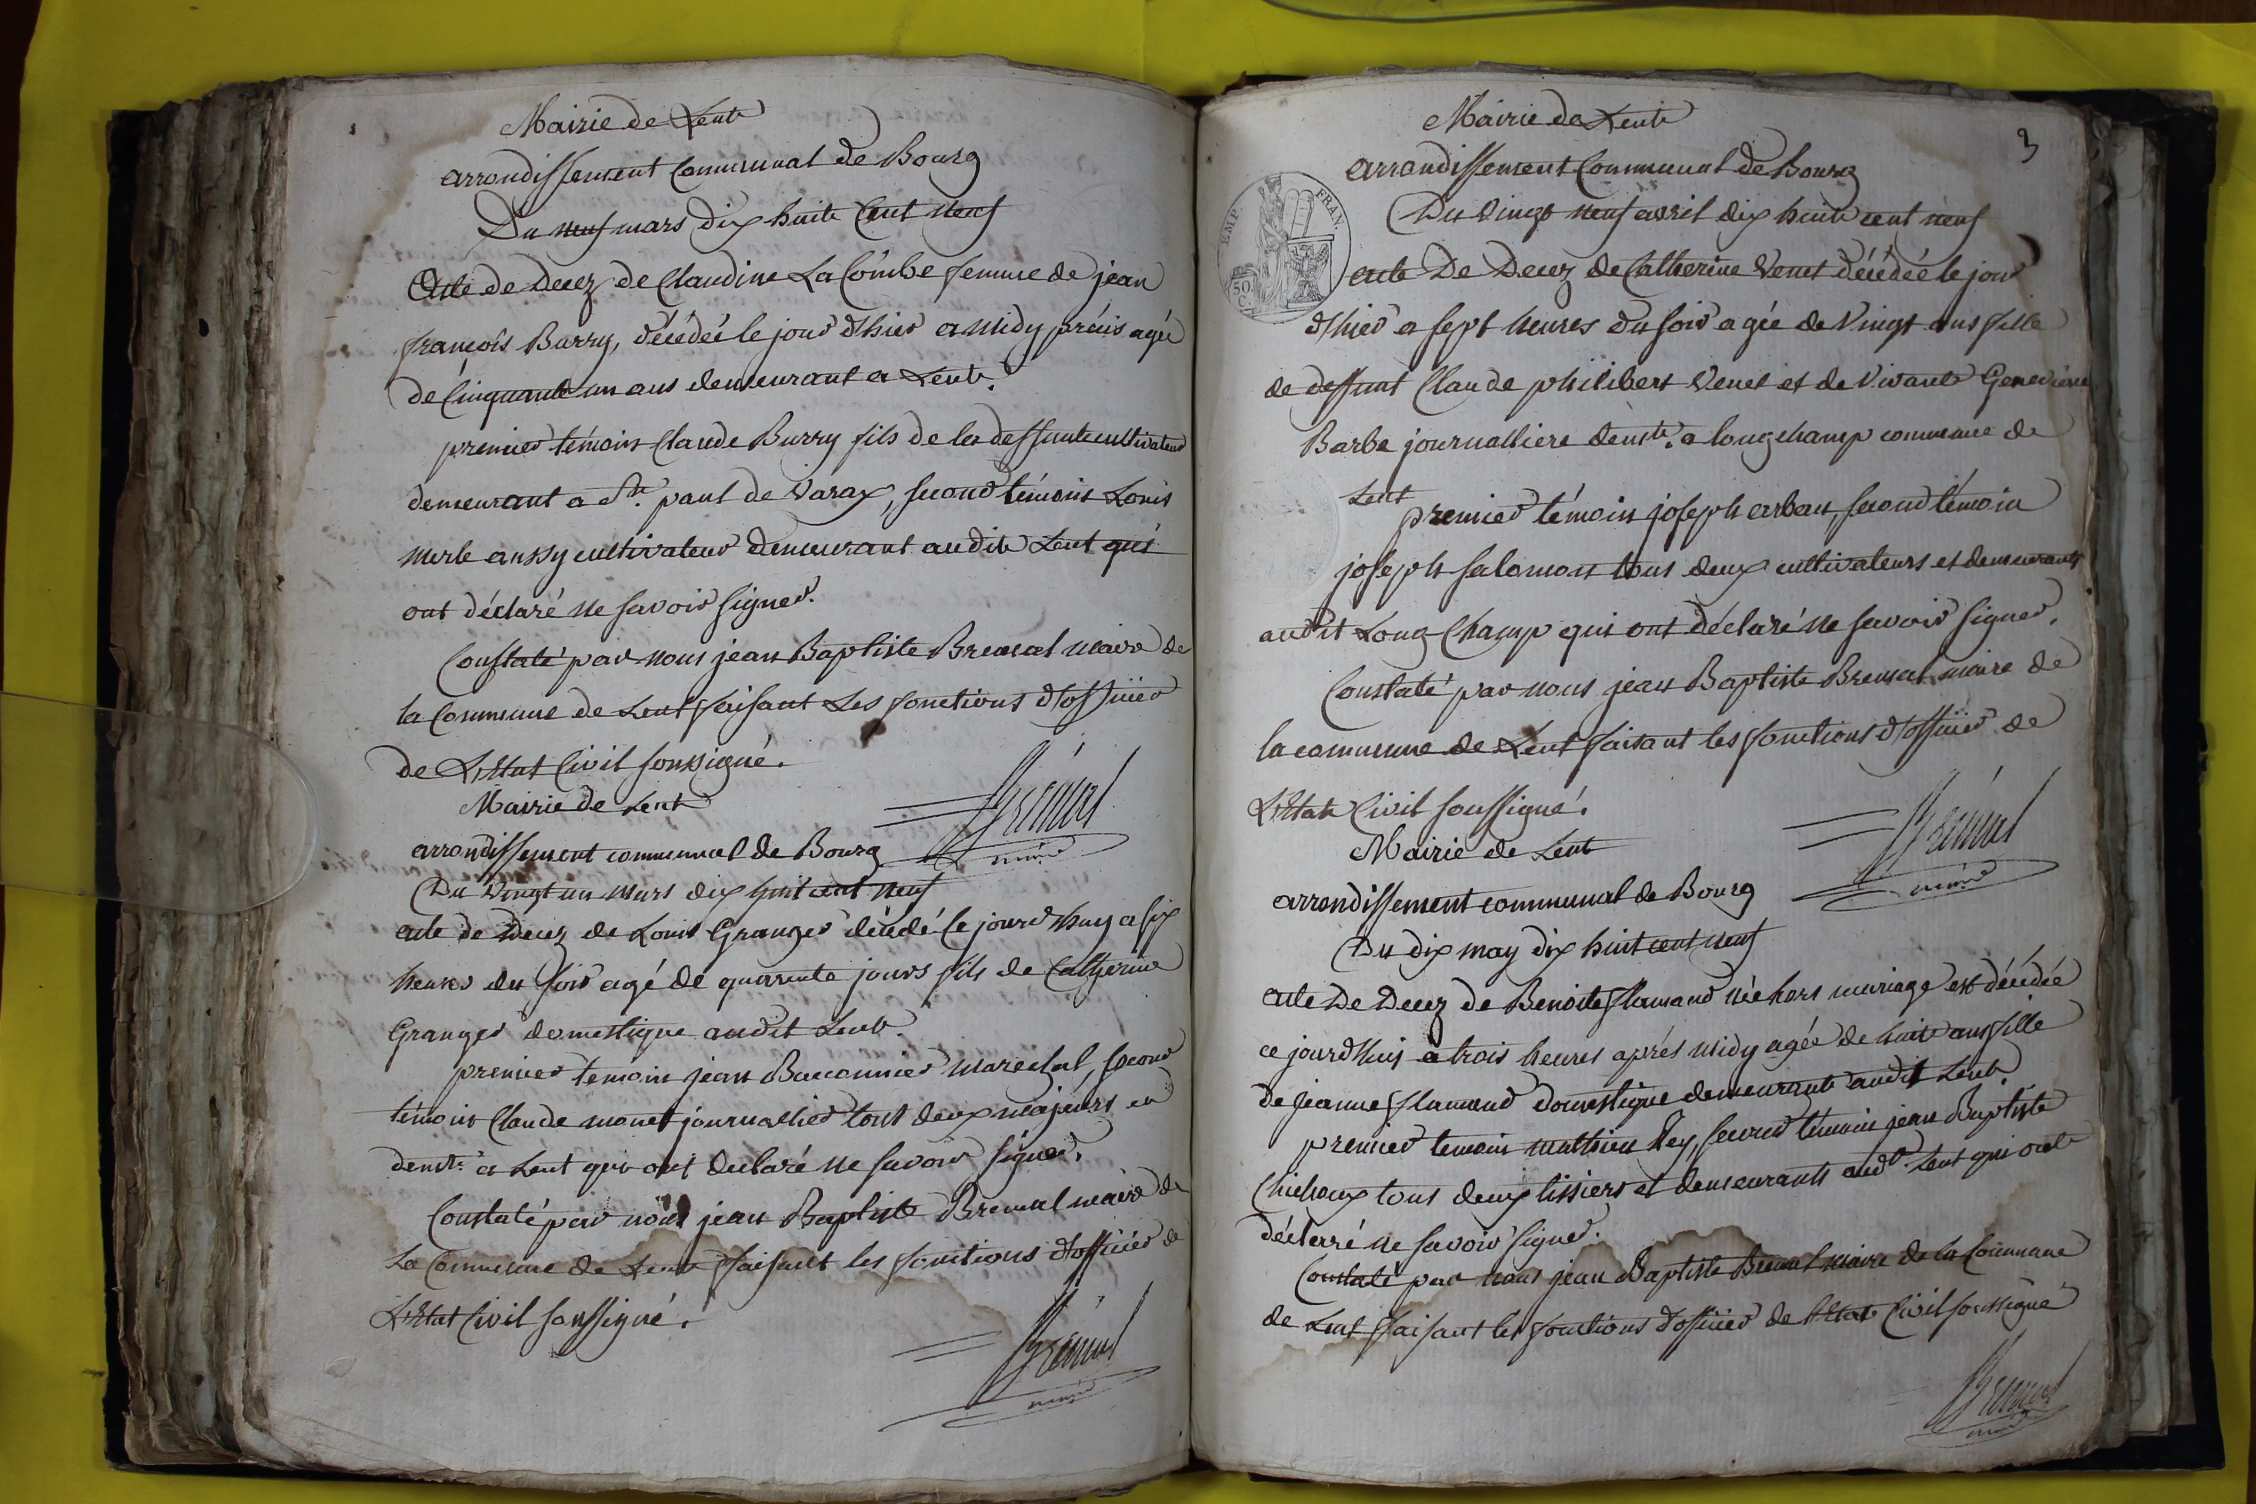 Mairie de Lent
arrondissement Communal de Bourg
Du neuf mars dix huite Cent neuf
Acte de Decez de Claudine La Combe femme de jean
françois Burry, décédée le jour d'hier a midy précis agée
de Cinquante un ans demeurant a Lent.
premier témoin Claude Burry fils de la deffunte cultivateur
demeurant a St. paul de Varax, second témoin Louis
merle aussy cultivateur demeurant audit Lent qui
ont déclaré ne savoir signer.
Constaté par nous jean Baptiste Bremal maire de
la Commune de Lent faisant Les fonctions d'officier
de L'Etat Civil soussigné.
Brémal
maire
Mairie de Lent
arrondissement communal de Bourg
Du Vingt un mars dix huit cent neuf
acte de Decez de Louis Granger décédé le jourd'huy a six
heures du soir agé de quarente jours fils de Catherine
Granger domestique audit Lent.
premier temoin jean Baconnier marechal, second
témoin Claude monet journallier tous deux majeurs et
demt. a Lent qui ont declaré ne savoir signer.
Constaté par nous jean Baptiste Bremal maire de
La Commune de Lent faisant les fonctions d'officier de
L'Etat Civil soussigné.
Brémal
maire
3
Mairie de Lent
arrondissement Communal de Bourg
EMP. FRAN.
50 C.
Du Vingt neuf avril dix huit cent neuf
acte De Decez de Catherine Venet décédée le jour
d'hier a sept heures du soir agée de Vingt ans fille
de deffunt Claude philibert Venet et de Vivante Genevieve
Barbe journalliere demte. a longchamp commune de
Lent
premier témoin joseph arban, second témoin
joseph salomon tous deux cultivateurs et demeurants
audit Long Champ qui ont déclaré ne savoir signer.
Constaté par nous jean Baptiste Bremal maire de
la commune de Lent faisant les fonctions d'officier de
L'Etat Civil soussigné.
Brémal
maire
Mairie de Lent
arrondissement communal de Bourg
Du dix may dix huit cent neuf
acte De Decez de Benoite flamand née hors mariage est décédée
ce jourd'huis a trois heures aprés midy agée de huit ans fille
de jeanne flamand domestique demeurante audit Lent.
premier temoin mathieu Rey, second témoin jean Baptiste
tous deux tissiers et demeurants audt. Lent qui ont
déclarré ne savoir signer.
Constaté par nous jean Baptiste Bremal maire de la Commune
de Lent faisant les fonctions d'officier de l'Etat Civil soussigné
Brémal
maire